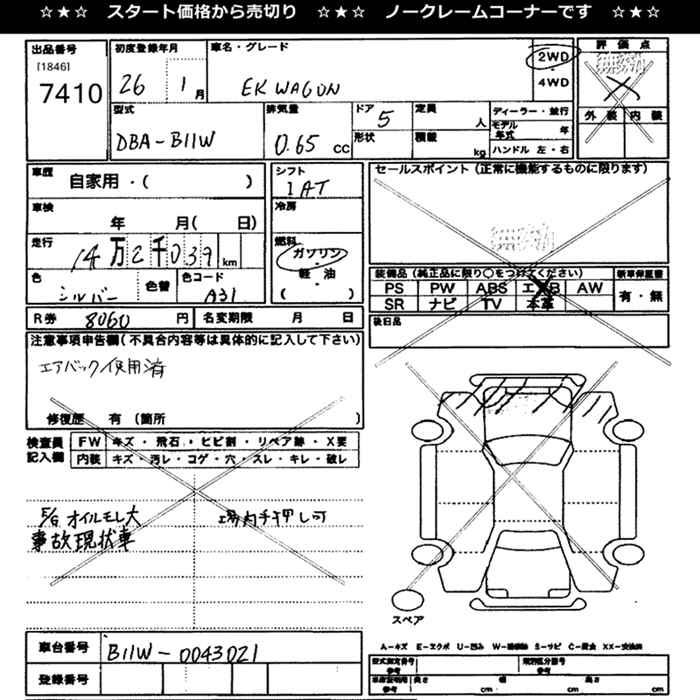 ☆★☆ スタート価格から売切り ☆★☆ ノークレームコーナーです ☆★☆
出品番号
[1846]
7410
初度登録年月
26 1月
車名・グレード
EK WAGON
2WD
・
4WD
評価点
外装 内装
型式
DBA-B11W
排気量
0.65 cc
ドア 5
形状
定員 人
積載 kg
ディーラー・並行
モデル年式 年
ハンドル 左・右
車歴
自家用・( )
車検
年 月( 日)
走行
14万2千039 km
色
シルバー
色替
色コード
A31
シフト
IAT
冷房
燃料
ガソリン
・
軽油
( )
セールスポイント(正常に機能するものに限ります)
装備品(純正品に限り○をつけてください)
PS PW ABS エアB AW
SR ナビ TV 本革
新車保証書
有・無
後日品
R券 8060 円
名変期限 月 日
注意事項申告欄(不具合内容等は具体的に記入して下さい)
エアバック使用済
修復歴 有(箇所 )
検査員記入欄
FW キズ・飛石・ヒビ割・リペア跡・X要
内装 キズ・汚レ・コゲ・穴・スレ・キレ・破レ
オイルモレ大
場内手押し可
事故現状車
スペア
A-キズ E-エクボ U-凹み W-補修跡 S-サビ C-腐食 XX-交換済
車台番号
B11W-0043021
登録番号
型式指定番号
参考
類別区分番号
参考
車庫証明用
参考
長さ cm
幅 cm
高さ cm